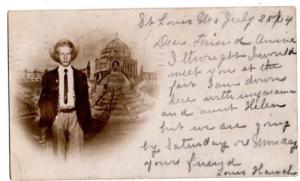 St Louis Mo July 28/04
Dear Friend Annie
I thought I would
meet you at the
fair I am down
here with my mama
and aunt Helen
but we are going
by Saturday or Sunday
your friend
Louis